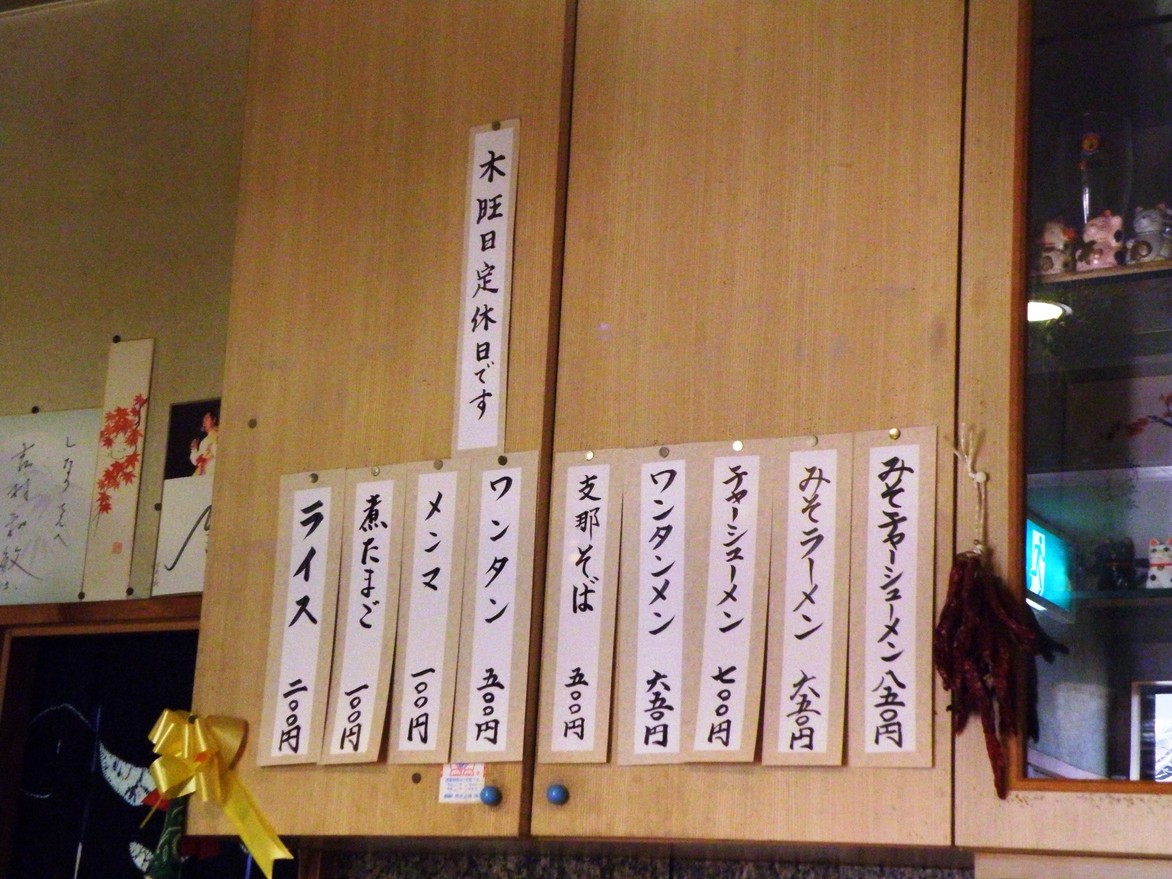 木旺日定休日です
みそチャーシューメン 八五〇円
みそラーメン 六五〇円
チャーシューメン 七〇〇円
ワンタンメン 六五〇円
支那そば 五〇〇円
ワンタン 五〇〇円
メンマ 一〇〇円
煮たまご 一〇〇円
ライス 二〇〇円